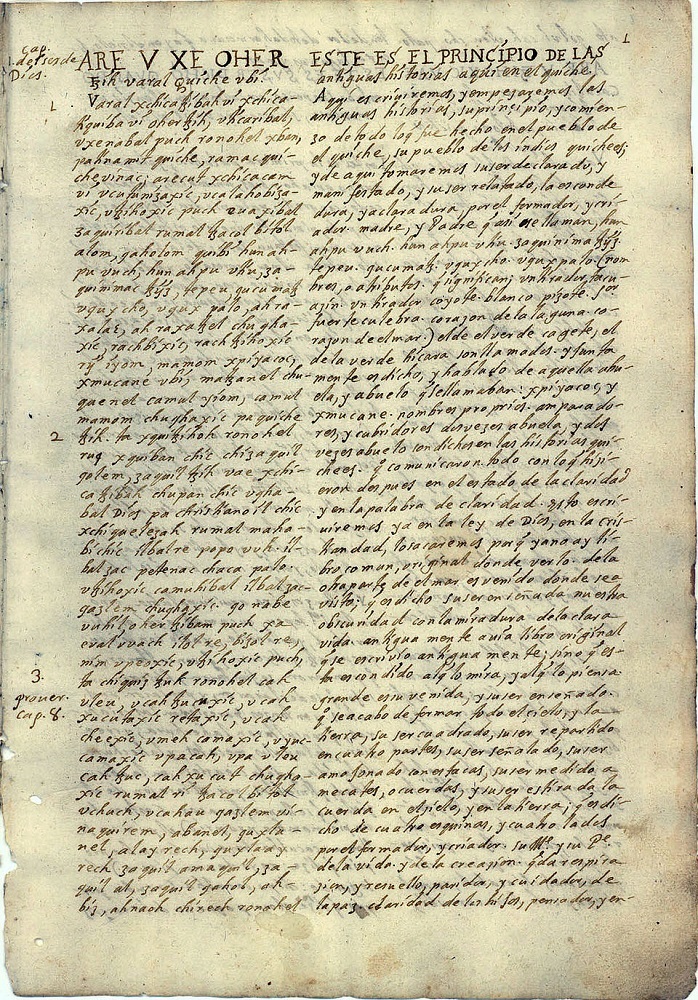 1
Cap.
1. del ser de
Dios.
ARE V XE OHER
tzih varal Quiche vbi.
1
Varal xchicatzibah vi xchica-
tiquiba vi oher tzih, vticaribal,
vxenabal puch ronohel xban,
pa tinamit quiche, ramac qui-
che vinac; arecut xchicacam
vi vcutunizaxic, vcalahobiza-
xic, vtzihoxic puch euaxibal
zaquiribal rumal tzacol bitol
alom, qaholom quibi hun ah-
pu vuch, hun ahpu vtiu, za-
quinimac tzÿz, tepeu qucumatz
vqux cho, vqux palo, ah ra-
xalaq, ah raxa tzel chugha-
xic, rachbixic, rachtzihoxic
rÿ iyom, mamom xpiyacoc,
xmucane vbi, matzanel chu-
quenel camul yiom, camul
mamom chughaxic pa quiche
2
tzih. ta xquitzihoh ronohel
ruq xquiban chic chi zaquil
qolem, zaquil tzih vae xchi-
catzibah chupan chic vgha-
bal Dios pa christianoil chic
xchiquelezah rumal maha-
bi chic ilbal re popo vuh. il-
bal zac petenac chaca palo.
vtzihoxic camuhibal ilbal zac
qazlem chughaxic. qo nabe
vuhil, oher tzibam puch xa
eval vvach ilol re, bizol re,
nim vpeoxic, vtzihoxic puch,
3.
prouer.
cap. 8.
ta chiquis tzuk ronohel cah
vleu, vcah tzucuxic, vcah
xucutaxic retaxic, vcah
cheexic, vmeh camaxic, vyuc
camaxic vpa cah, vpa vleu
cah tzuc, cah xucut chugha-
xic rumal ri tzacol bitol
vchuch, vcahau qazlem vi-
naquirem, abanel, quxla-
nel, alay rech, quxlaay
rech zaquil amaquil, za-
quil al, zaquil qahol, ah-
biz, ahnaoh chirech ronohel
ESTE ES EL PRINCIPIO DE LAS
antiguas historias aqui en el quiche.
Aqui escriuiremos, y empezaremos las
antiguas historias, su principio, y comien-
zo de todo lo q̃ fue hecho en el pueblo de
el quiche, su pueblo de los indios quichees;
y de aqui tomaremos su ser declarado, y
manifestado, y su ser relatado, la esconde
dura, y aclaradura, por el formador, y cri-
ador. madre, y Padre q̃ asi se llaman, hun
ahpu vuch. hun ahpu vtiu. zaquinima tzÿz.
tepeu. qucumatz. vqux cho. vqux palo. (nom
bres, o atributos. q̃ significan; vn tirador tacu-
azin. vn tirador coyote. blanco pizote. for
fuerte culebra. corazon de la laguna. co-
razon de el mar.) el de el verde cagete, el
de la verde hicara son llamados. y junta
mente es dicho, y hablado de aquella abu-
ela, y abuelo q̃ se llamaban: xpiyacoc, y
xmucane. nombres proprios. amparado-
res, y cubridores dos vezes abuela, y dos
vezes abuelo son dichos en las historias qui-
chees. q̃ comunicaron todo con lo q̃ hizi-
eron despues en el estado de la claridad
y en la palabra de claridad. esto escri-
uiremos ya en la ley de Dios, en la cris-
tiandad, lo sacaremos por q̃ ya no ay li-
bro comun, original donde verlo. de la
otra parte de el mar es venido donde se e
visto; q̃ es dicho su ser enseñada nuestra
obscuridad con la miradura de la clara
vida. antigua mente auia libro original
q̃ se escriuio antigua mente; sino q̃ es-
ta escondido al q̃ lo mira, y al q̃ lo piensa.
grande es su venida, y su ser enseñado.
q̃ se acabo de formar todo el cielo, y la
tierra, su ser cuadrado, su ser repartido
en cuatro partes, su ser señalado, su ser
amojonado con estacas, su ser medido a
mecates, o cuerdas, y su ser estirada la
cuerda en el cielo, y en la tierra; q̃ es di-
cho de cuatro esquinas, y cuatro lados
por el formador, y criador. su Mᵉ. y su Pᵉ.
de la vida. y de la creazion. q̃ da respira
zion, y resuello, paridor, y cuidador, de
la paz. claridad de los hijos, pensador, y en-